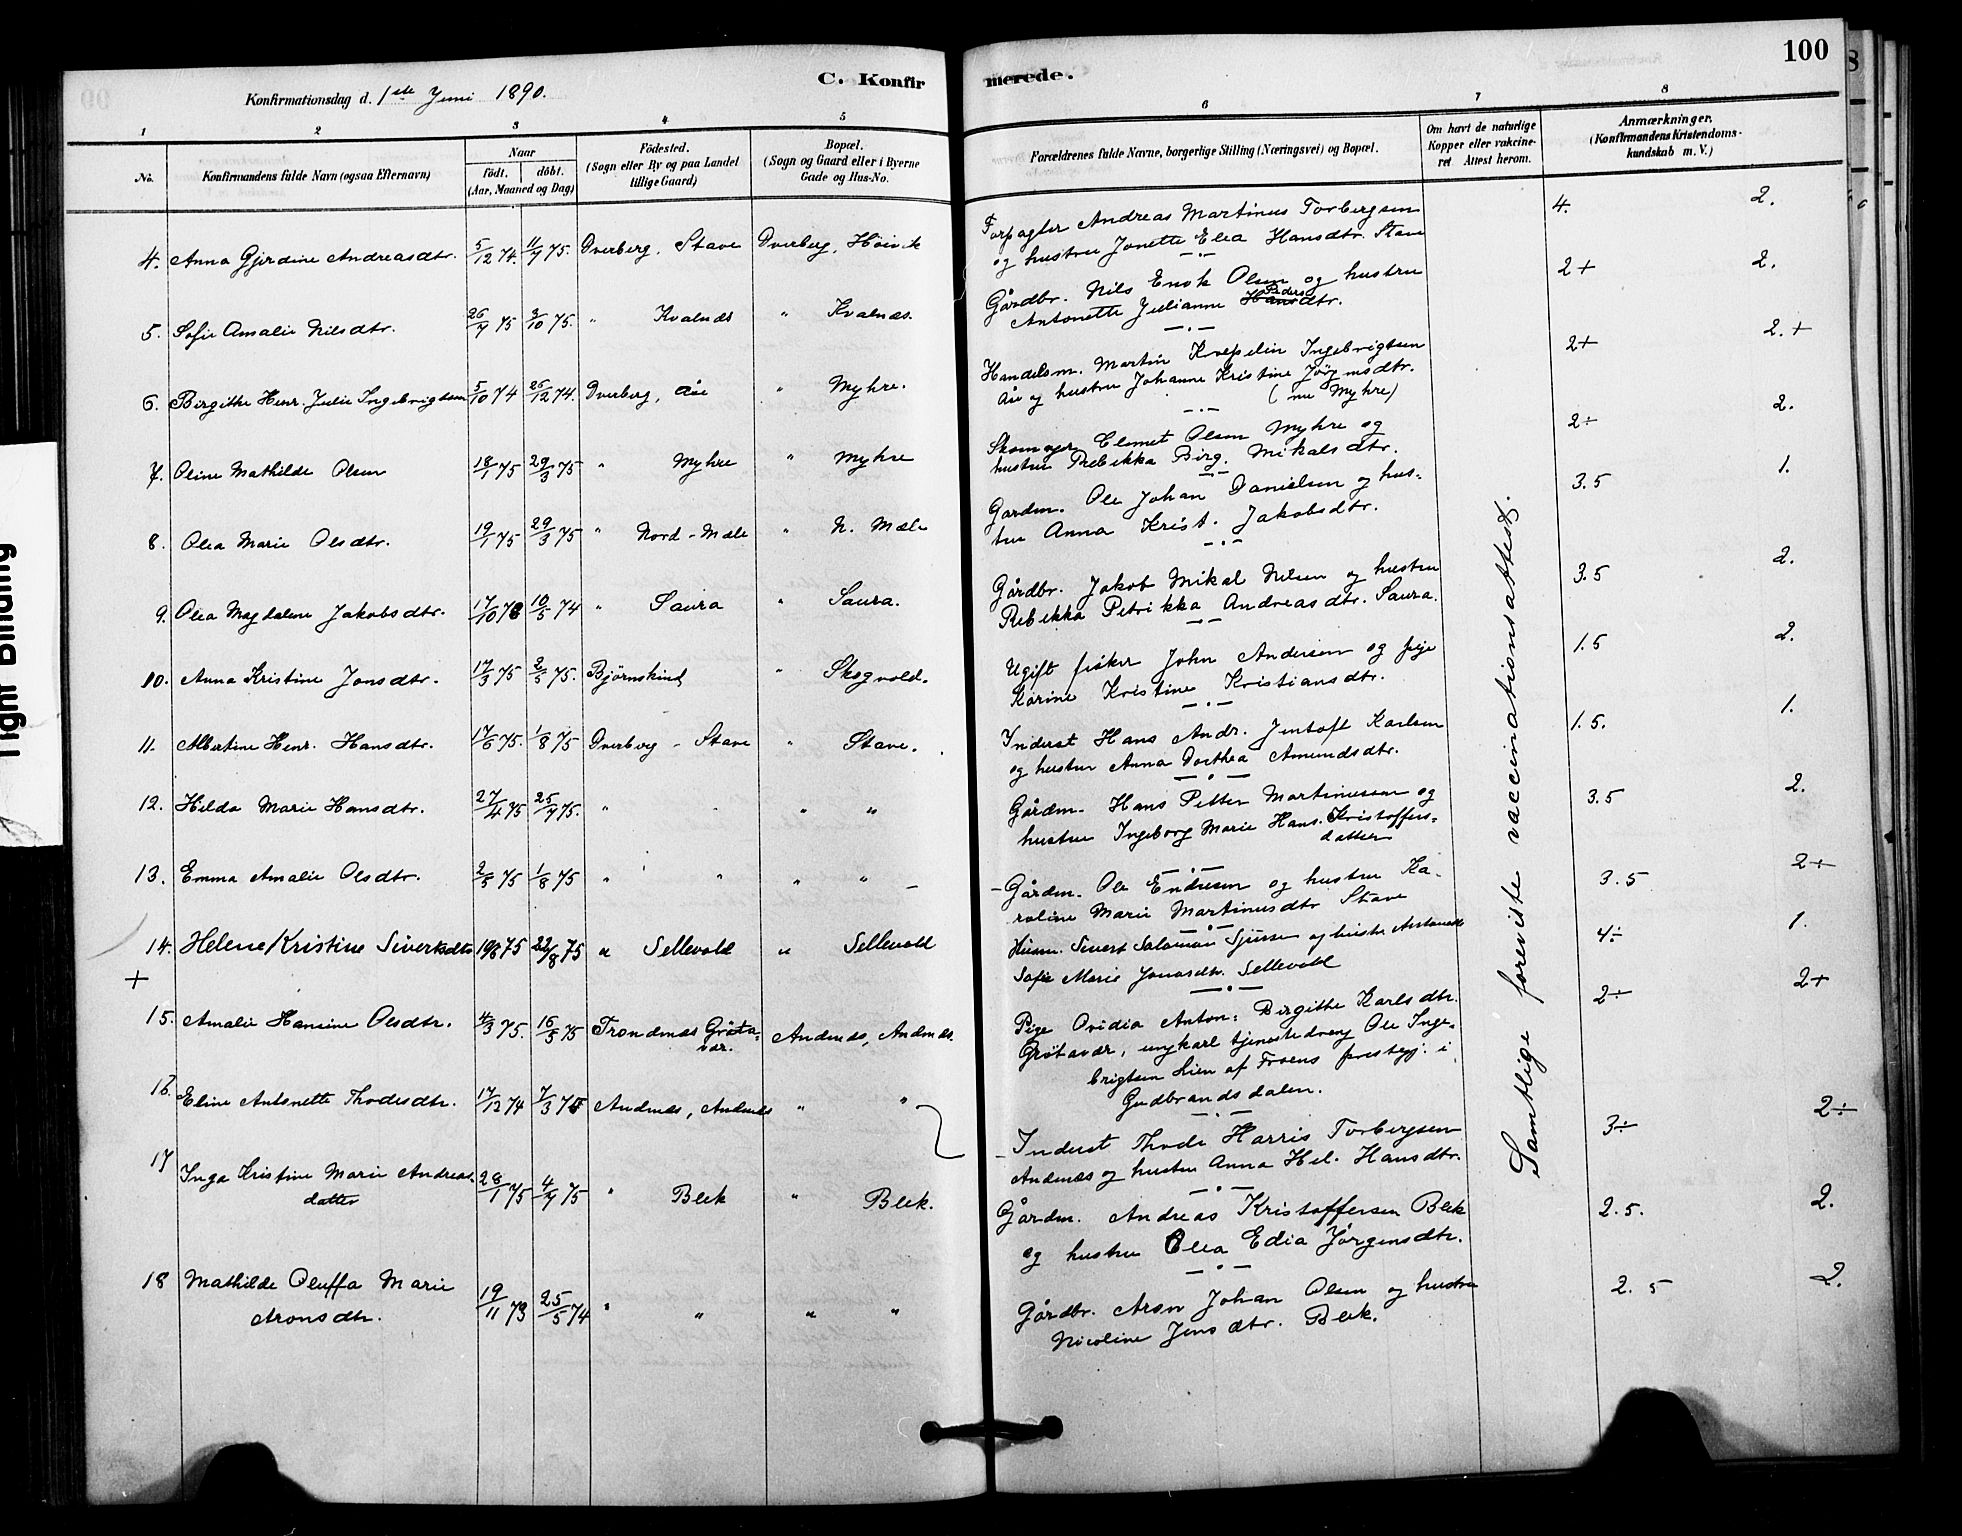 100
C. Konfirmerede.
Konfirmationsdag d. 1ste Juni 1890.
1 2 3 4 5 6 7 8
No.
Konfirmandens fulde Navn (ogsaa Efternavn)
Naar
födt. döbt.
(Aar, Maaned og Dag)
Födested.
(Sogn eller By og paa Landet
tillige Gaard)
Bopæl.
(Sogn og Gaard eller i Byerne
Gade og Hus-No.
Forældrenes fulde Navne, borgerlige Stilling (Næringsvei) og Bopæl.
Om havt de naturlige
Kopper eller vakcine-
ret Attest herom.
Anmærkninger,
(Konfirmandens Kristendoms-
kundskab m. V.)
4. Anna Gjerdine Andreasdtr. 5/12 74. 11/7 75. Dverberg, Stave Dverberg, Höivik
Forpagter Andreas Martinus Torbergsen
og hustru Jonette Elea Hansdtr. Stave
4. 2.
5. Sofie Amalie Nilsdtr. 26/7 75 3/10 75. " Kvalnes " Kvalnes.
Gårdbr. Nils Enok Olsen og hustru
Antonette Julianne Hans Peders dtr.
2+ 2.
6. Birgithe Henr. Julie Ingebrigtsen 5/10 74 26/12 74. Dverberg, Åse " Myhre.
Handelsm. Martin Ingebrigtsen
Åse og hustru Johanne Kristine Jörgensdtr.
(nu Myhre)
2+ 2.+
7. Oline Mathilde Olsen 18/1 75 29/3 75 " Myhre " Myhre
Skomager Clemet Olsen Myhre og
hustru Rebekka Birg. Mikalsdtr.
2÷ 2.
8. Olea Marie Olsdtr. 19/1 75 29/3 75 " Nord-Mæle " N. Mæle
Gaardm. Ole Johan Danielsen og hus-
tru Anna Krist. Jakobsdtr.
3.5 1.
9. Olea Magdalene Jakobsdtr. 17/10 73 10/5 74 " Saura " Saura.
Gårdbr. Jakob Mikal Nilsen og hustru
Rebekka Petrikka Andreasdtr. Saura.
3.5 2.
10. Anna Kristine Jonsdtr. 17/3 75 2/5 75. Björnskind " Skogvold.
Ugift fisker John Andersen og pige
Karine Kristine Kristiansdtr.
1.5 2.
11. Albertine Henr. Hansdtr. 17/6 75. 1/8 75 Dverberg - Stave " Stave.
Inderst Hans Andr. Jentoft Karlsen
og hustru Anna Dorthea Amundsdtr.
1.5. 1.
12. Hilda Marie Hansdtr. 27/4 75 25/7 75. " " "
Gårdm. Hans Petter Martinussen og
hustru Ingeborg Marie Hans. Kristoffers-
datter
3.5 2.
13. Emma Amalie Olsdtr. 2/5 75 1/8 75 " " " "
Gårdm. Ole Endresen og hustru Ka-
roline Marie Martinusdtr Stave
3.5 2+
14. Helene Kristine Sivertsdtr 19/6 75 22/8 75 " Sellevold " Sellevold
+
Husm. Sivert Salamon Sjursen og hustru
Sofie Marie Jonasdtr. Sellevold
4÷ 1.
15. Amalie Hansine Olsdtr. 4/3 75. 16/5 75 Trondenæs Gröta-
vær. Andenæs, Andenæs.
Pige Ovidia Anton: Birgithe Karlsdtr.
Grötavær, ungkarl tjenestedreng Ole Inge-
brigtsen Lien af Froens prestegj. i
Gudbrandsdalen.
2÷ 2+
16. Eline Antonette Thodesdtr. 17/12 74 7/3 75 Andenæs, Andenæs " "
Inderst Thode Harris Torbergsen
Andenæs og hustru Anna Hel. Hansdtr.
3÷ 2÷
17 Inga Kristine Marie Andreas-
datter 28/1 75 4/7 75 " Bleik " Bleik.
Gårdm. Andreas Kristoffersen Bleik
og hustru Olea Edia Jörgensdtr.
2.5. 2.
18 Mathilde Oluffa Marie
Aronsdtr. 19/11 73 25/5 74 " " " "
Gårdbr. Aron Johan Olsen og hustru
Nicoline Jensdtr. Bleik.
2.5 2.
Samtlige foreviste vaccinationsattest.
Tight Binding